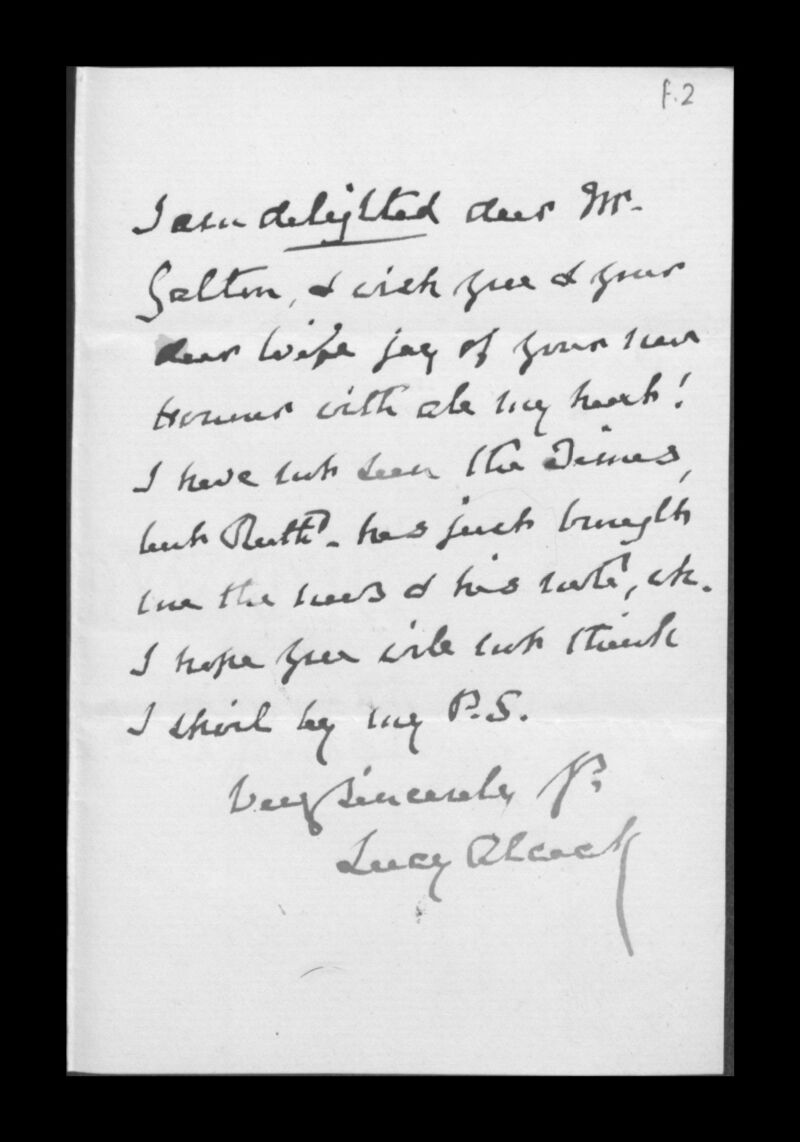 f.2
I am delighted dear Mr.
Galton, & wish you & your
dear wife joy of your new
honour with all my heart!
I have not seen the Times,
but Ruthd. has just brought
me the news & his note,
I hope you will not think
I spoil by my P.S.
Very sincerely yrs
Lucy Alcock